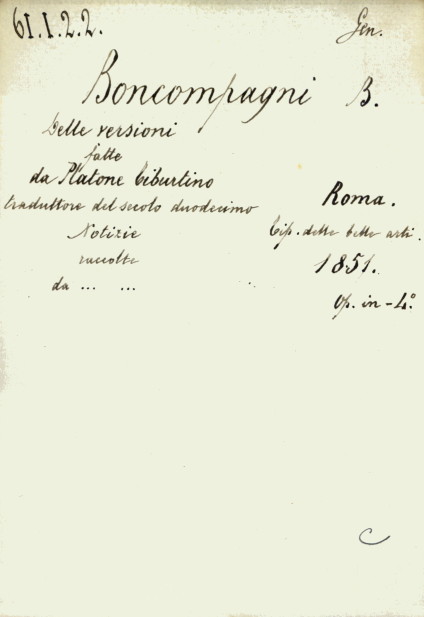 61.1.2.2. Gen.
Boncompagni B.
Delle versioni
fatte
da Platone Tiburtino
traduttore del secolo duodecimo
Notizie
raccolte
da ... ...
Roma.
Tip. delle belle arti.
1851.
Op. in-4.º
C